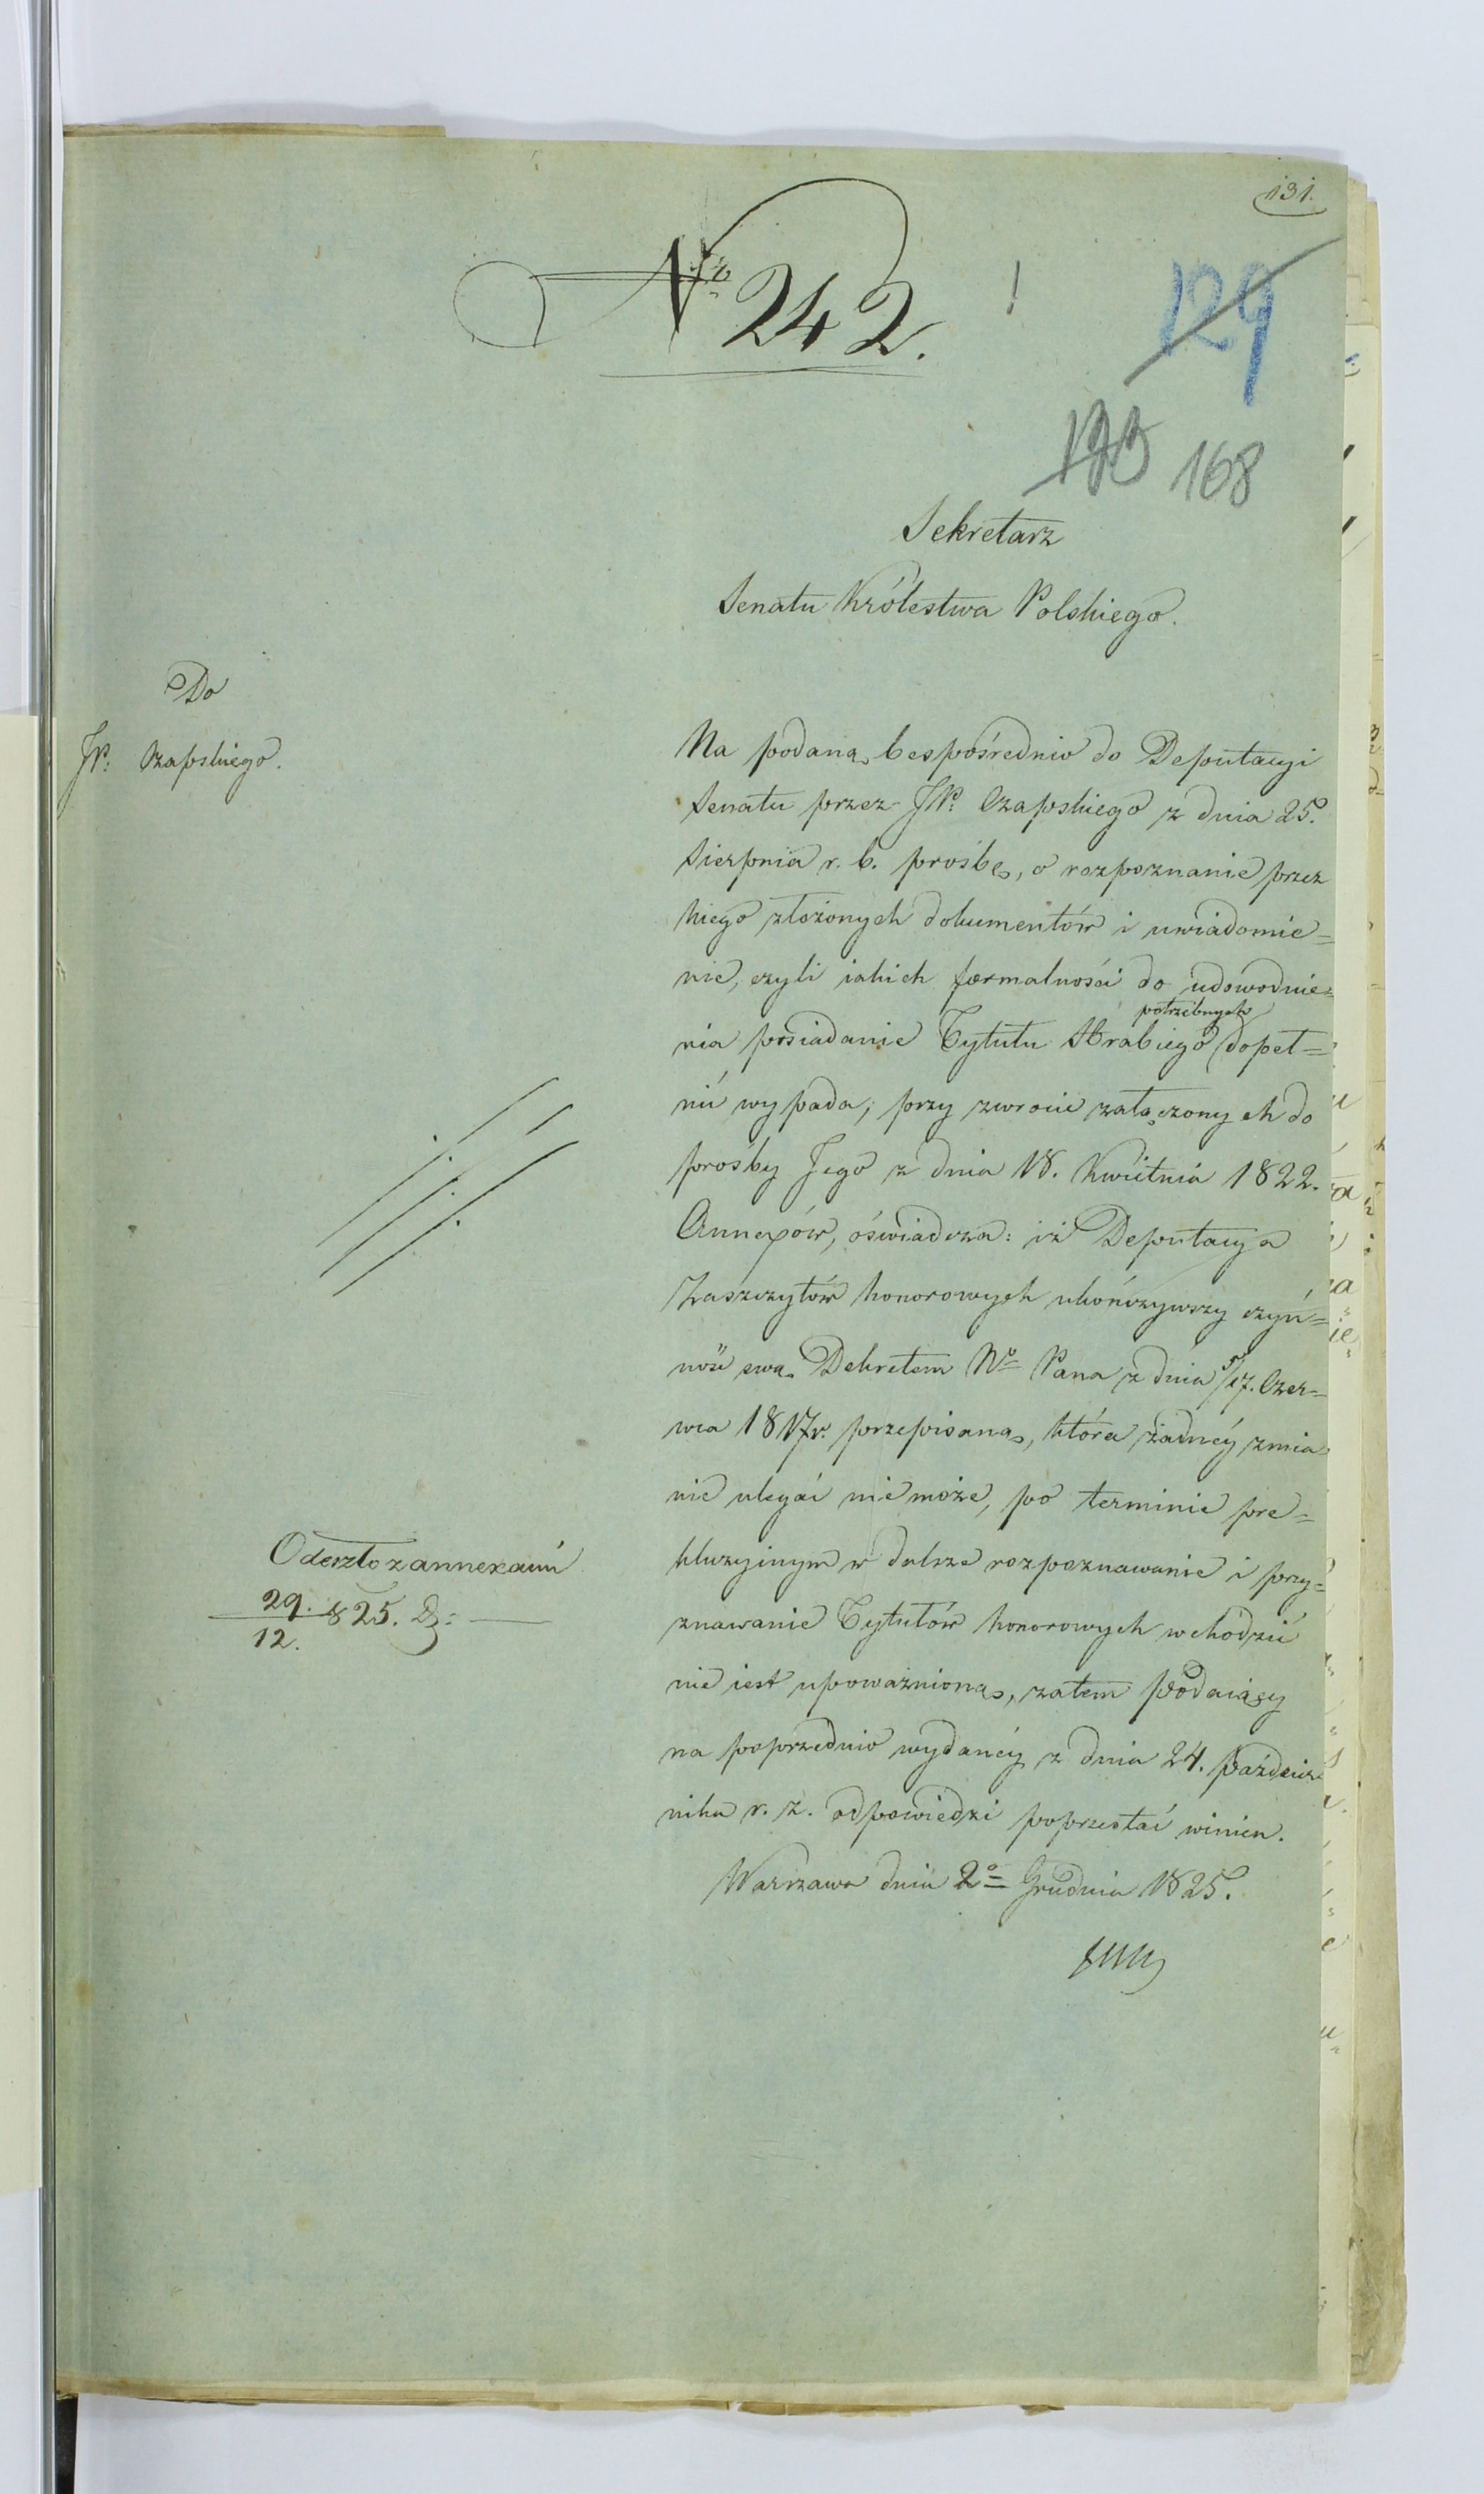 131.
Nro 242.
129
168
Sekretarz
Senatu Królestwa Polskiego.
Do
JP. Czapskiego.
Na podaną bespośrednio do Deputacyi
Senatu przez JP. Czapskiego z dnia 25.
Sierpnia r. b. prośbę, o rozpoznanie przez
niego złożonych dokumentów i uwiadomie=
nie, czyli iakich formalności do udowodnie=
potrzebnych
nia posiadanie Tytułu Hrabiego dopeł=
nić wypada, przy zwrocie załączonych do
prośby Jego z dnia 18. Kwietnia 1822.
Annexów, oświadcza: iż Deputacya
Zaszczytów honorowych ukończywszy czyn=
ność swą Dekretem No Pana z dnia 5/17. Czer=
wca 1817r. przepisaną, która żadnéy zmia
nie ulegać nie może, po terminie pre=
kluzyinym w dalsze rozpoznawanie i przy=
znawanie Tytułów honorowych wchodzić
nie iest upoważnioną, zatem Podaiący
na poprzednio wydanéy z dnia 24. Paździer
nika r. z. odpowiedzi poprzestać winien.
Warszawa dnia 2o Grudnia 1825.
Odeszło z annexami
29./12. 825.